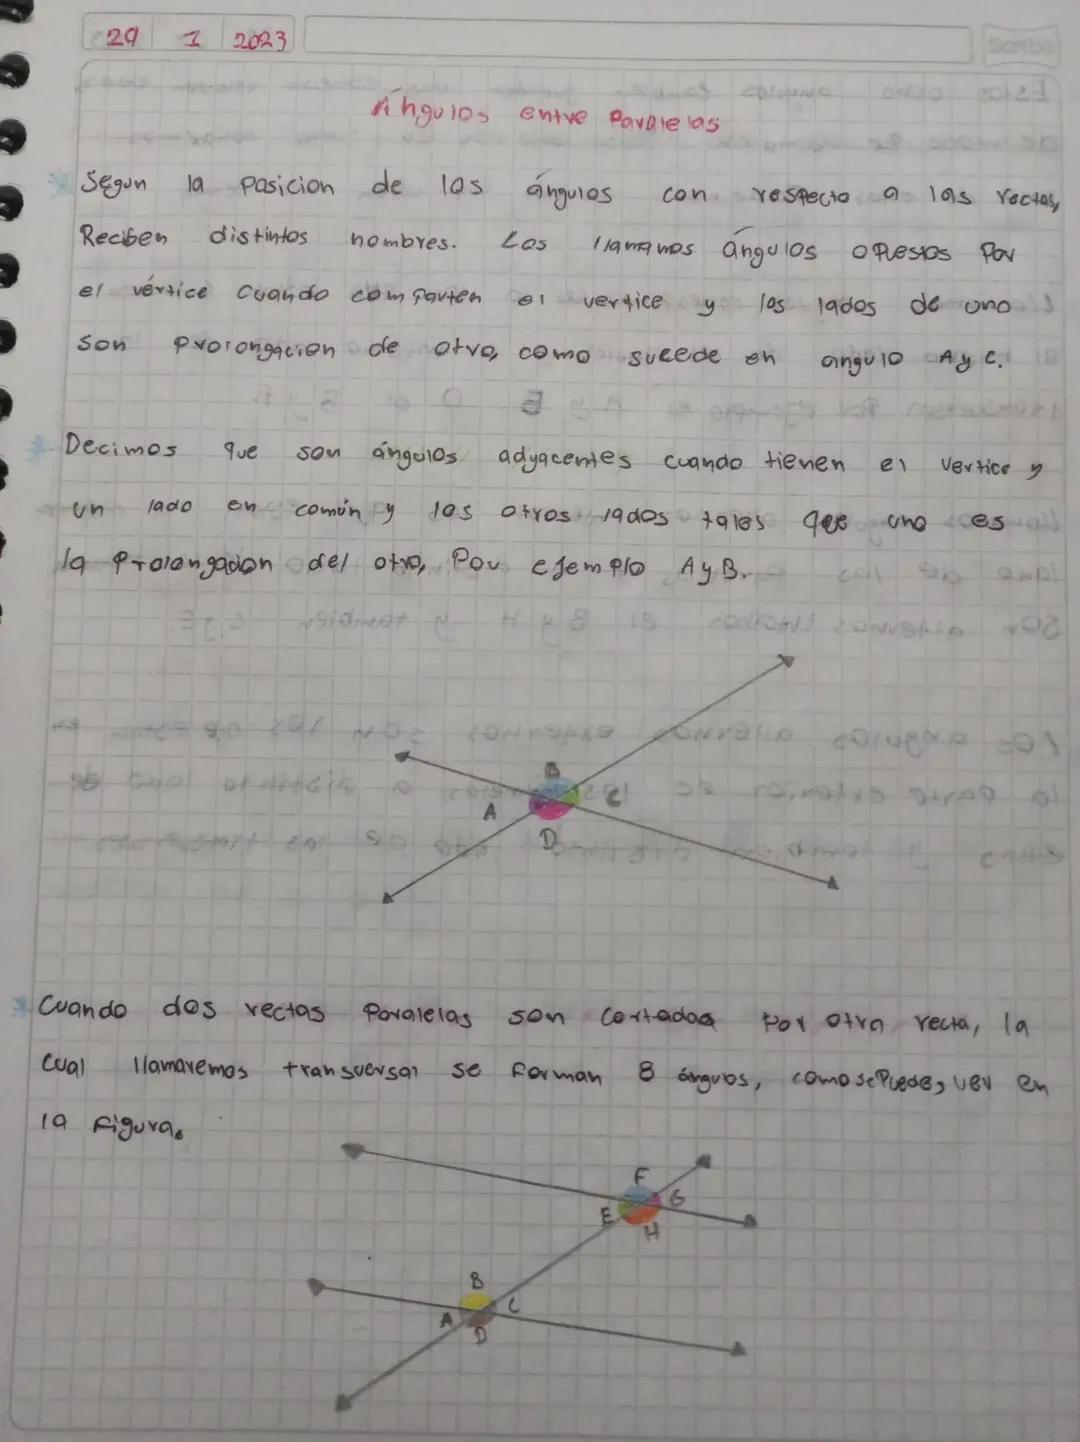 29 1 2023
Scribe
Ángulos entre Paralelas
Segun la Posicion de los ángulos con respecto a las rectas,
Reciben distintos nombres. Los llamamos ángulos opuestos Por
el vértice Cuando comparten el vertice y los lados de uno
son Prolongacion de otro, como sucede en angulo A y C.
Decimos que son ángulos adyacentes cuando tienen el vertice y
un lado en común y los otros lados tales que uno es
la Prolongacion del otro, Por ejemplo A y B.
B
A C
D
Cuando dos rectas Paralelas son Cortadas Por otra recta, la
cual llamaremos transversal se forman 8 ángulos, como se Puede, ver en
la Figura.
F
E G
H
B
A C
D